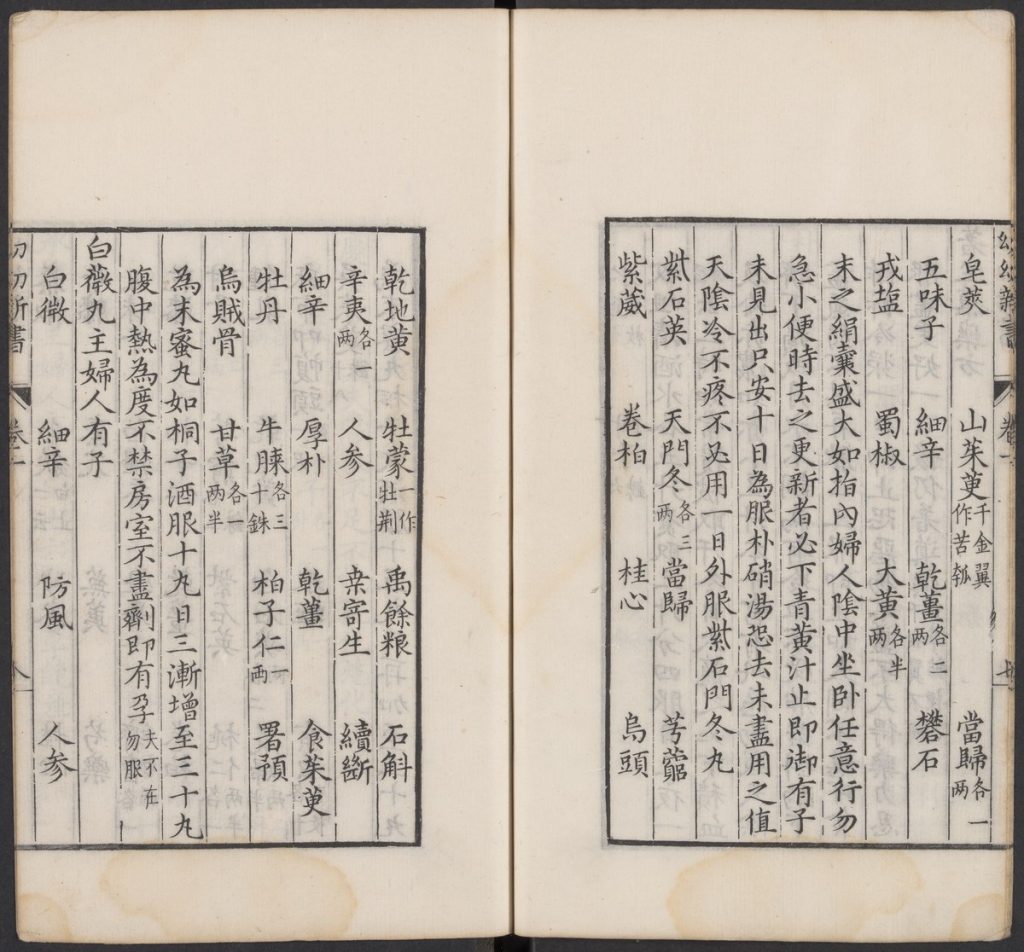 皂莢 山茱萸千金翼作苦瓠 當歸各一两
五味子 細辛 乾薑各二两 礬石
戎塩 蜀椒 大黄各半两
末之絹囊盛大如指内婦人陰中坐卧任意行勿
急小便時去之更新者必下青黄汁止即御有子
未見出只安十日為服朴硝湯恐去未盡用之值
天陰冷不疼不必用一日外服紫石門冬丸
紫石英 天門冬各三两 當歸 芎藭
紫葳 卷柏 桂心 烏頭
乾地黄 牡蒙一作牡荆 禹餘粮 石斛
辛夷各一两 人参 桒寄生 續斷
細辛 厚朴 乾薑 食茱萸
牡丹 牛膝各三十銖 柏子仁一两 署預
烏賊骨 甘草各一两半
為末蜜丸如桐子酒服十丸日三漸增至三十丸
腹中熱為度不禁房室不盡劑即有孕夫不在勿服
白薇丸主婦人有子
白薇 細辛 防風 人参
幼幼新書 卷二